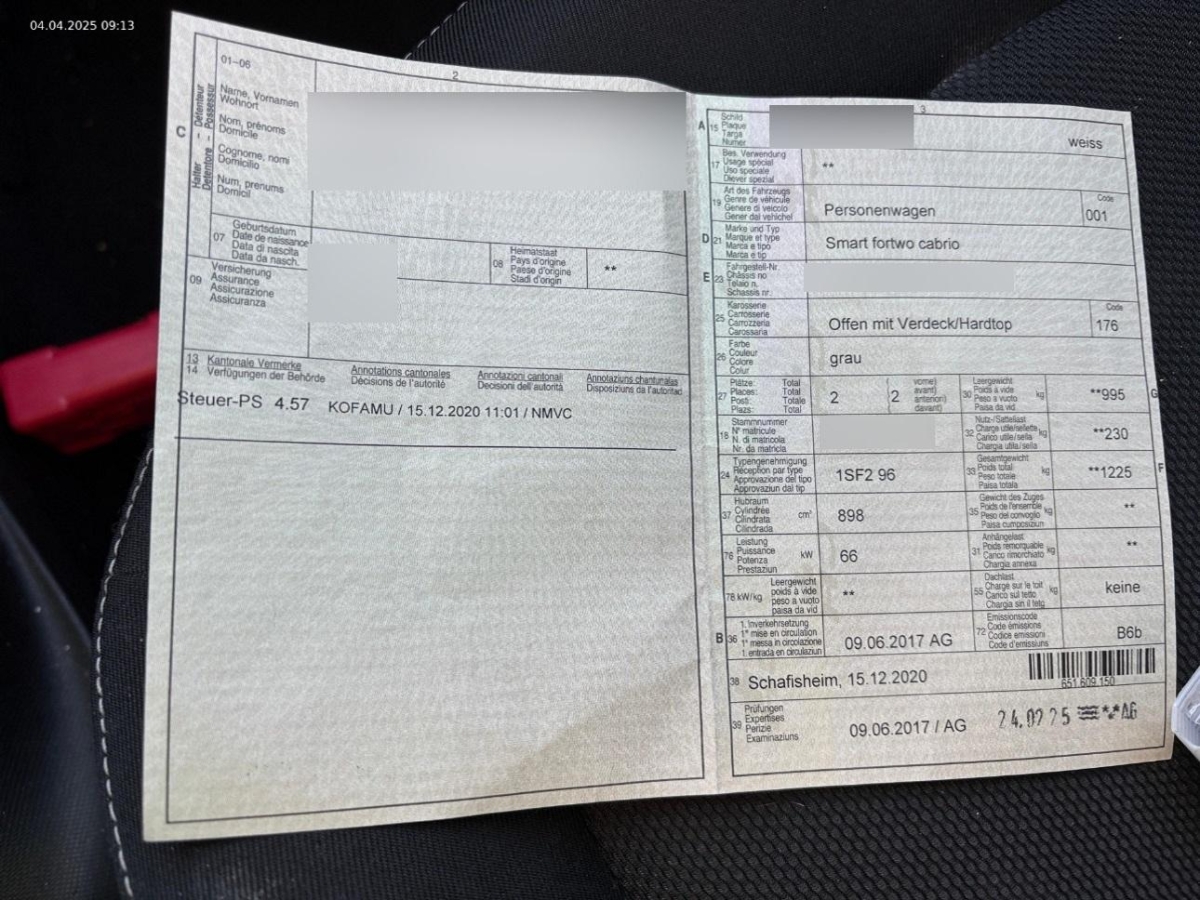 04.04.2025 09:13
01-06
2
C
Halter - Détenteur
Detentore - Possessur
Name, Vornamen
Wohnort
Nom, prénoms
Domicile
Cognome, nomi
Domicilio
Num, prenums
Domicil
07
Geburtsdatum
Date de naissance
Data di nascita
Data da nasch.
08
Heimatstaat
Pays d'origine
Paese d'origine
Stadi d'origin
**
09
Versicherung
Assurance
Assicurazione
Assicuranza
13 Kantonale Vermerke
14 Verfügungen der Behörde
Annotations cantonales
Décisions de l'autorité
Annotazioni cantonali
Decisioni dell'autorità
Annotaziuns chantunalas
Disposiziuns da l'autoritad
Steuer-PS 4.57 KOFAMU / 15.12.2020 11:01 / NMVC
3
A 15
Schild
Plaque
Targa
Numer
weiss
17
Bes. Verwendung
Usage spécial
Uso speciale
Diever spezial
**
19
Art des Fahrzeugs
Genre de véhicule
Genere di veicolo
Gener dal vehichel
Personenwagen
Code
001
D 21
Marke und Typ
Marque et type
Marca e tipo
Marca e tip
Smart fortwo cabrio
E 23
Fahrgestell-Nr.
Châssis no
Telaio n.
Schassis nr.
25
Karosserie
Carrosserie
Carrozzeria
Carossaria
Offen mit Verdeck/Hardtop
Code
176
26
Farbe
Couleur
Colore
Colur
grau
27
Plätze: Total
Places: Total
Posti: Totale
Plazs: Total
2
( vorne)
2 avant)
anteriori)
davant)
30
Leergewicht
Poids à vide
Peso a vuoto
Paisa da vid
kg
**995
G
18
Stammnummer
N° matricule
N. di matricola
Nr. da matricla
32
Nutz-/Sattellast
Charge utile/sellette
Carico utile/sella
Chargia utila/sella
kg
**230
24
Typengenehmigung
Réception par type
Approvazione del tipo
Approvaziun dal tip
1SF2 96
33
Gesamtgewicht
Poids total
Peso totale
Paisa totala
kg
**1225
F
37
Hubraum
Cylindrée
Cilindrata
Cilindrada
cm³
898
35
Gewicht des Zuges
Poids de l'ensemble
Peso del convoglio
Paisa cumposiziun
kg
**
76
Leistung
Puissance
Potenza
Prestaziun
kW
66
31
Anhängelast
Poids remorquable
Carico rimorchiato
Chargia annexa
kg
**
78 kW/kg
Leergewicht
poids à vide
peso a vuoto
paisa da vid
**
55
Dachlast
Charge sur le toit
Carico sul tetto
Chargia sin il tetg
kg
keine
B 36
1. Inverkehrsetzung
1re mise en circulation
1a messa in circolazione
1. entrada en circulaziun
09.06.2017 AG
72
Emissionscode
Code émissions
Codice emissioni
Code d'emissiuns
B6b
38
Schafisheim, 15.12.2020
651 609 150
39
Prüfungen
Expertises
Perizie
Examinaziuns
09.06.2017 / AG
24.02 25 **AG